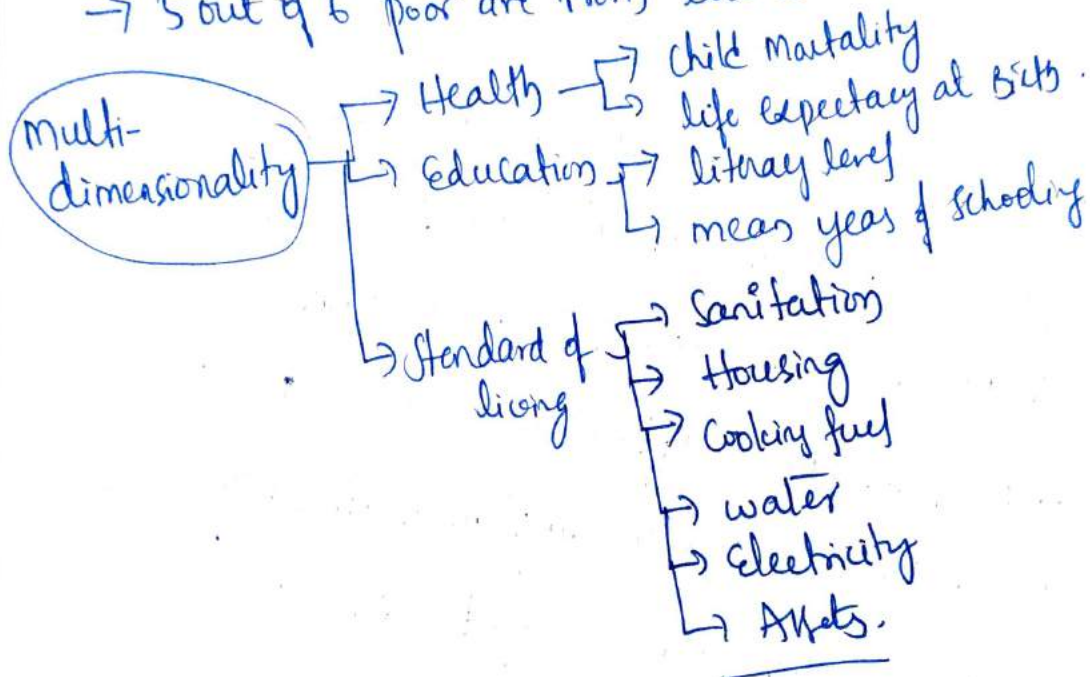 → 5 out of 6 poor are
Multi-
dimensionality
→ Health
→ child Mortality
→ life expectacy at Birth.
→ Education
→ literacy level
→ mean years of schooling
→ Standard of
living
→ Sanitation
→ Housing
→ Cooking fuel
→ water
→ Electricity
→ Assets.